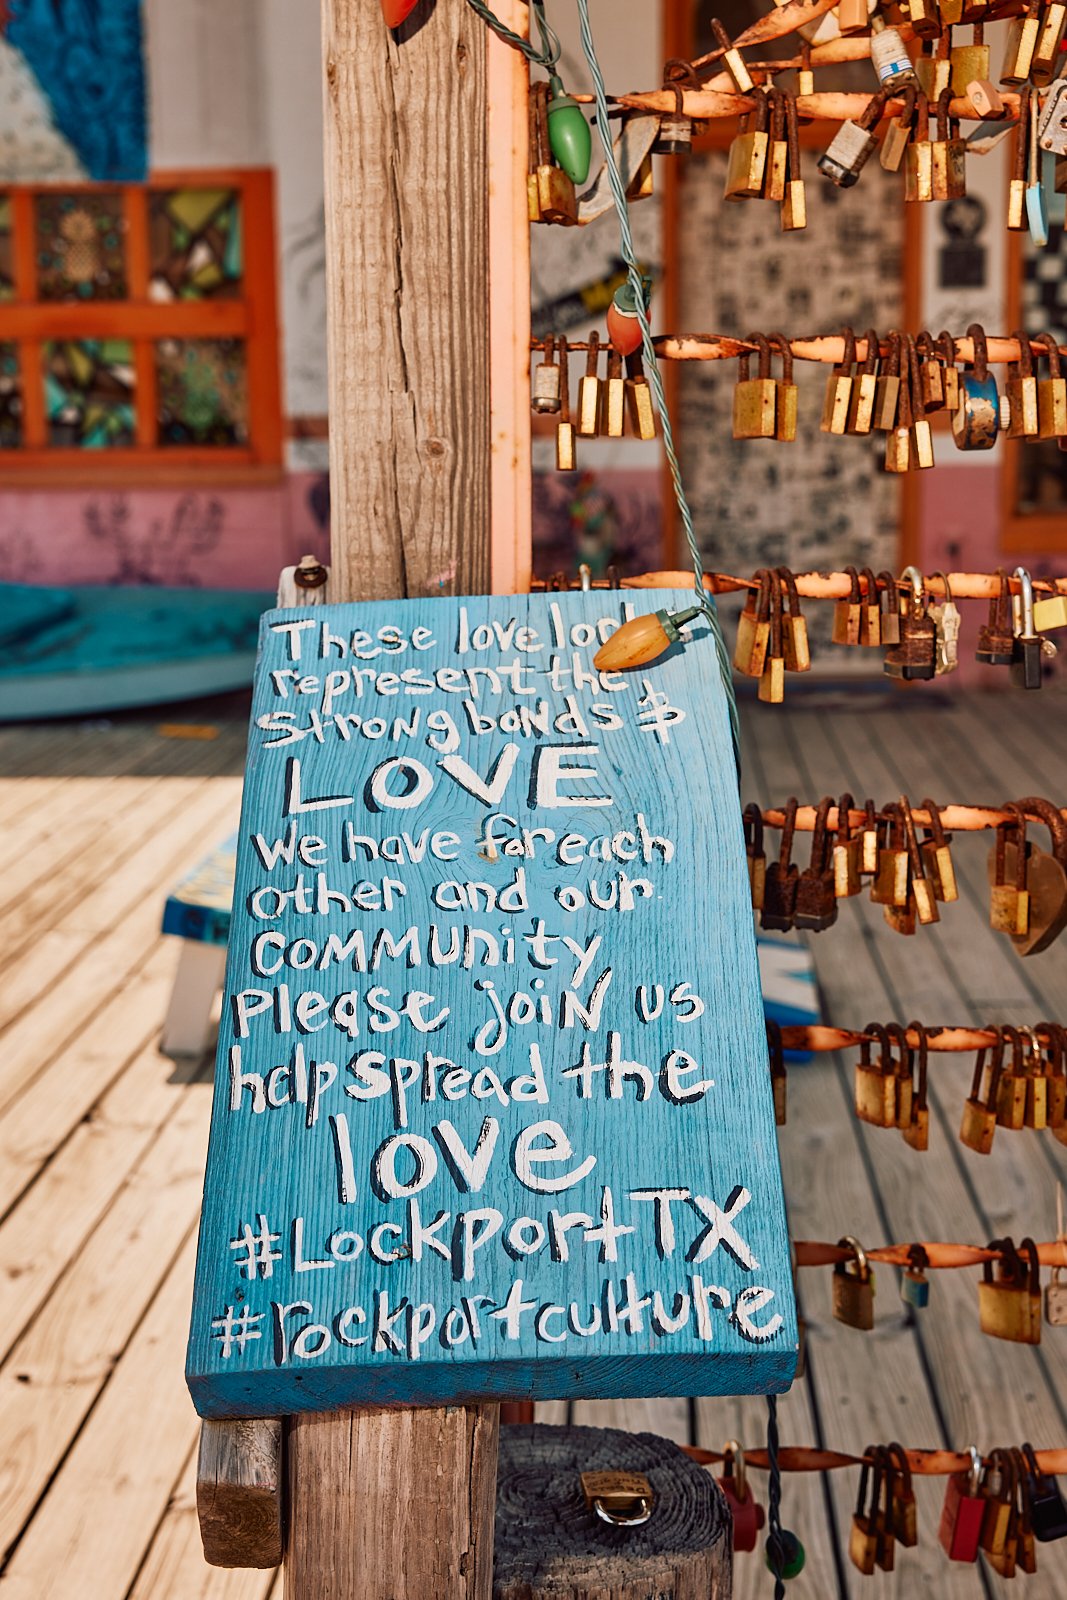 These love lo
represent the
strong bonds &
LOVE
we have for each
other and our
community
Please join us
help spread the
love
#LockportTX
#rockportculture